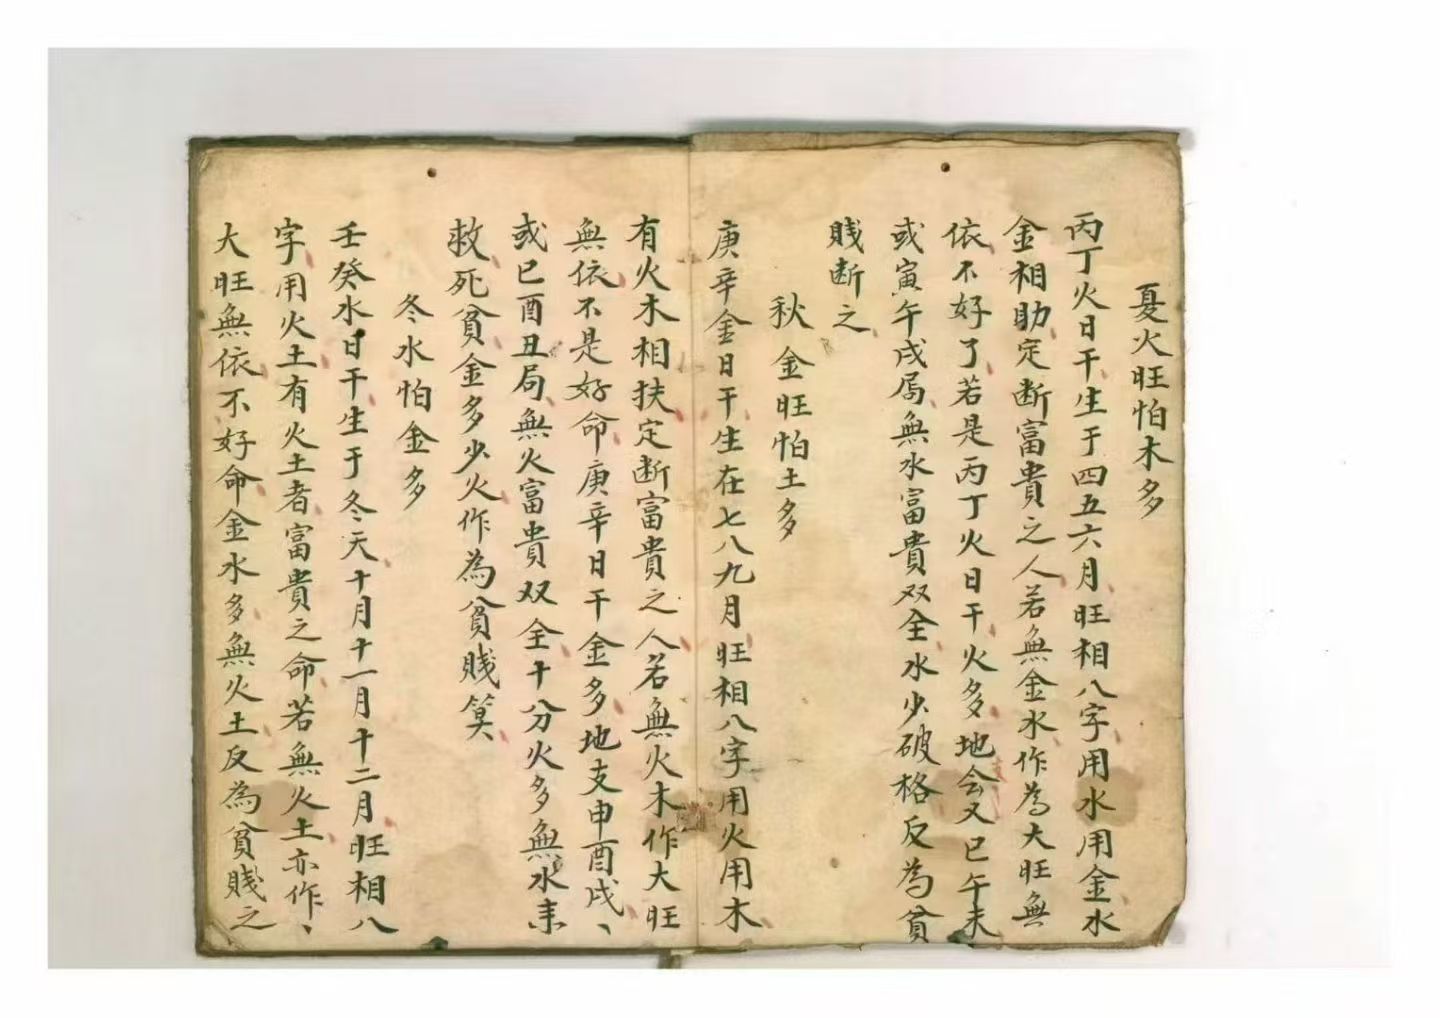 夏火旺怕木多
丙丁火日干生于四五六月旺相八字用水用金水
金相助定断富貴之人若無金水作為大旺無
依不好了若是丙丁火日干火多地支会又巳午未
或寅午戌局無水富貴双全水少破格反為貧
賤断之
秋金旺怕土多
庚辛金日干生在七八九月旺相八字用火用木
有火木相扶定断富貴之人若無火木作大旺
無依不是好命庚辛日干金多地支申酉戌、
或巳酉丑局無火富貴双全十分火多無水来
救死貧金多少火作為貧賤算
冬水怕金多
壬癸水日干生于冬天十月十一月十二月旺相八
字用火土有火土者富貴之命若無火土亦作、
大旺無依不好命金水多無火土反為貧賤之